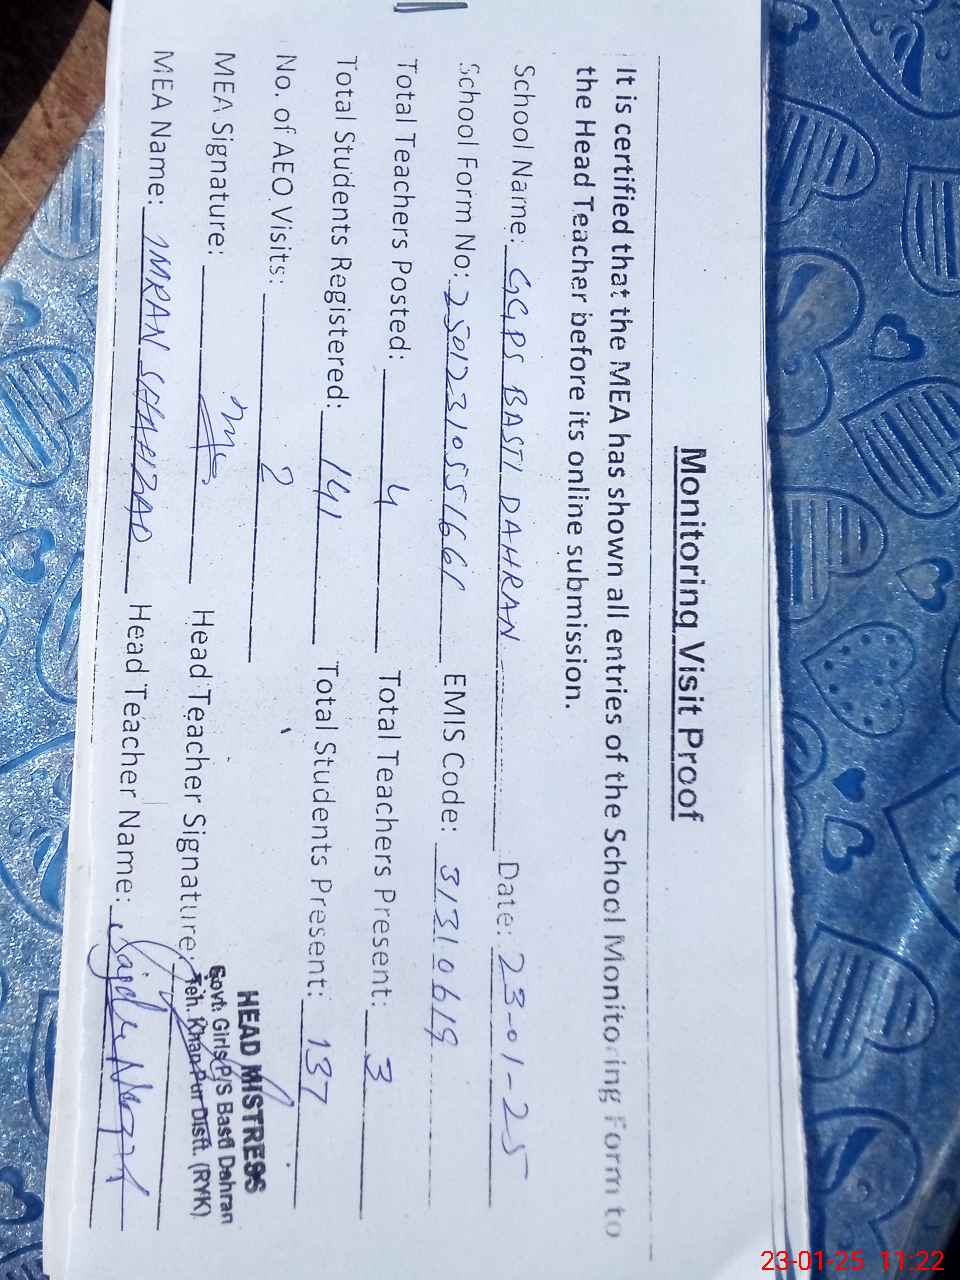 Monitoring Visit Proof
It is certified that the MEA has shown all entries of the School Monitoring Form to
the Head Teacher before its online submission.
School Name: GGPS BASTI DAHRAN Date: 23-01-25
School Form No: EMIS Code: 31310619
Total Teachers Posted: 4 Total Teachers Present: 3
Total Students Registered: 141 Total Students Present: 137
No. of AEO Visits: 2
MEA Signature: Head Teacher Signature:
MEA Name: IMRAN SHAHZAD Head Teacher Name:
HEAD MISTRESS
Govt. Girls P/S Basti Dahran
Teh. Khanpur Distt. (RYK)
23-01-25 11:22